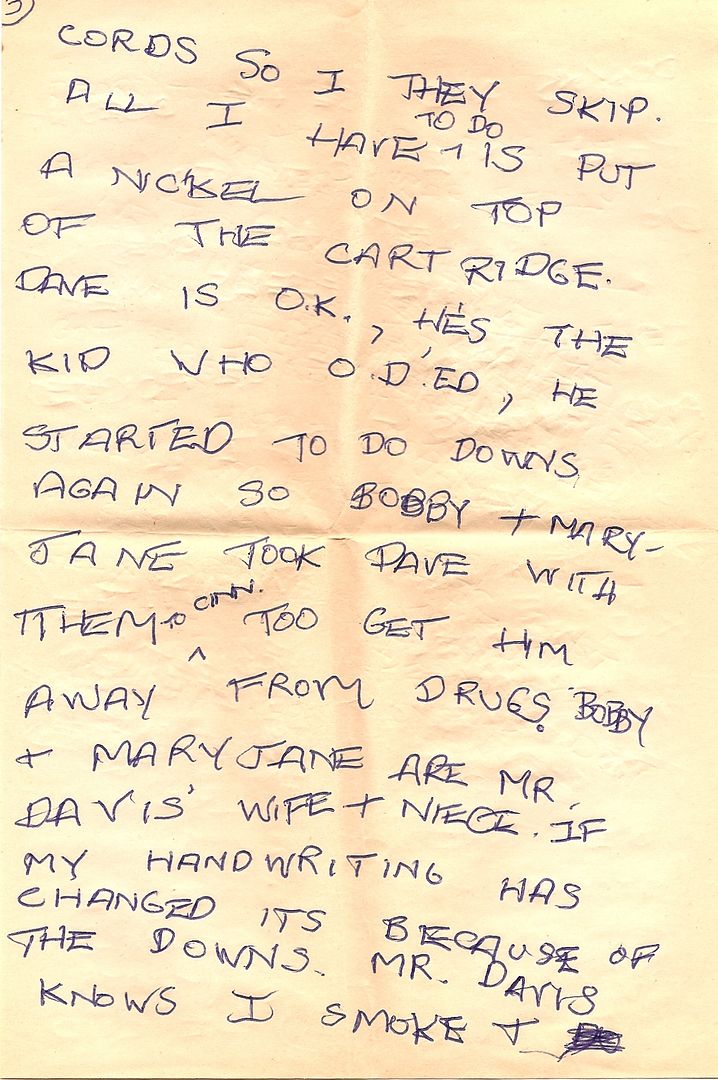 3)
CORDS SO I THEY SKIP.
ALL I HAVE TO DO IS PUT
A NICKEL ON TOP
OF THE CARTRIDGE.
DAVE IS O.K., HE'S THE
KID WHO O.D.'ED, HE
STARTED TO DO DOWNS
AGAIN SO BOBBY + MARY-
JANE TOOK DAVE WITH
THEM TO CINN. TOO GET HIM
AWAY FROM DRUGS. BOBBY
+ MARYJANE ARE MR.
DAVIS' WIFE + NIECE. IF
MY HANDWRITING HAS
CHANGED ITS BECAUSE OF
THE DOWNS. MR. DAVIS
KNOWS I SMOKE +